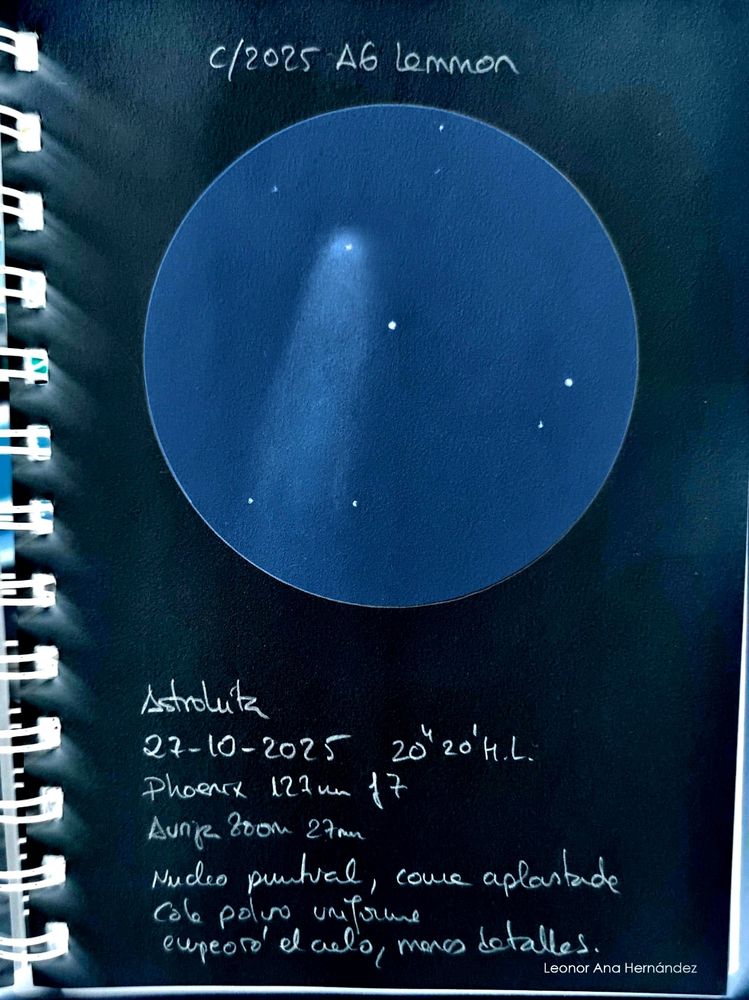 C/2025 A6 Lemmon
Astroleita
27-10-2025 20H 20' H.L.
Phoenix 127mm f7
zoom 27mm
Nucleo puntual, coma aplastada
Cola polvo uniforme
empeoró el cielo, menos detalles.
Leonor Ana Hernández